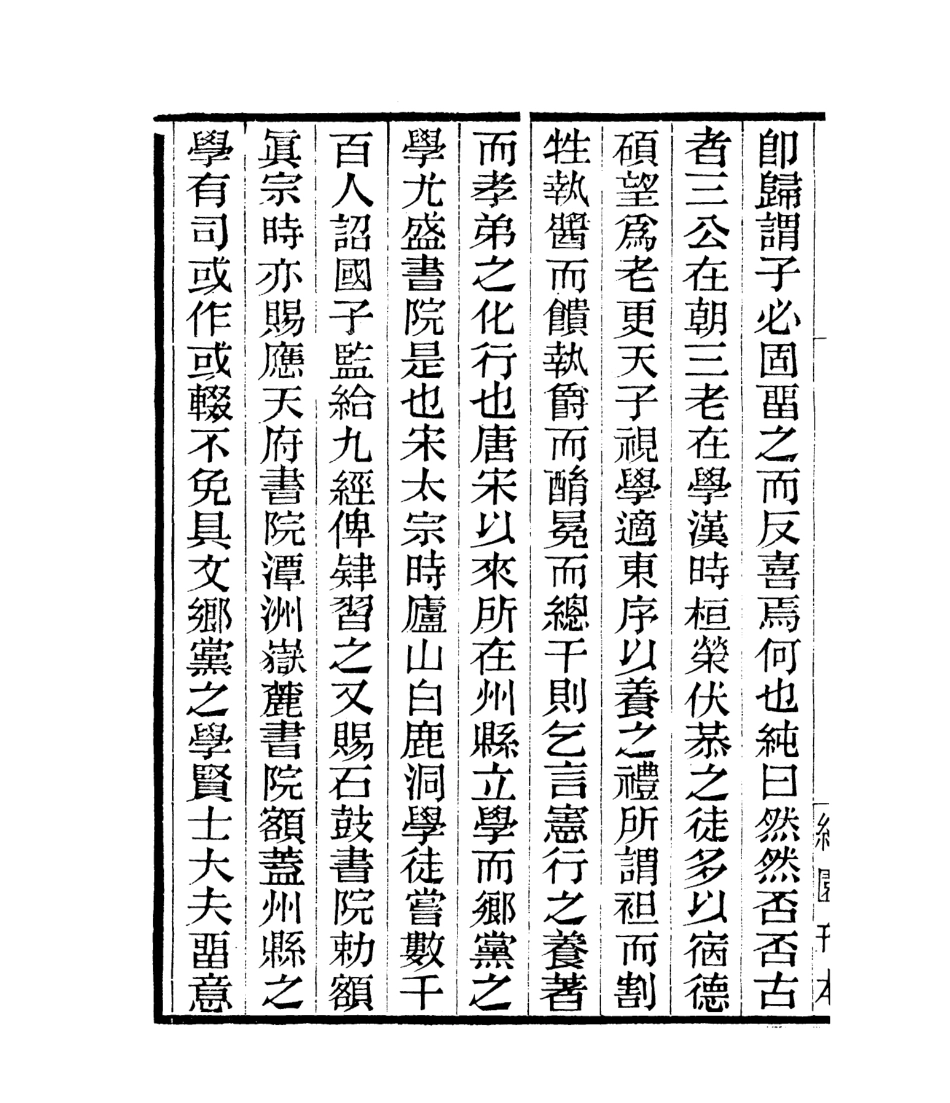 卽歸謂子必固畱之而反喜焉何也純曰然然否否古
者三公在朝三老在學漢時桓榮伏恭之徒多以宿德
碩望爲老更天子視學適東序以養之禮所謂袒而割
牲執醬而饋執爵而酳冕而總干則乞言憲行之養著
而孝弟之化行也唐宋以來所在州縣立學而鄕黨之
學尤盛書院是也宋太宗時廬山白鹿洞學徒嘗數千
百人詔國子監給九經俾肄習之又賜石鼓書院勅額
眞宗時亦賜應天府書院潭洲嶽麓書院額蓋州縣之
學有司或作或輟不免具文鄕黨之學賢士大夫畱意